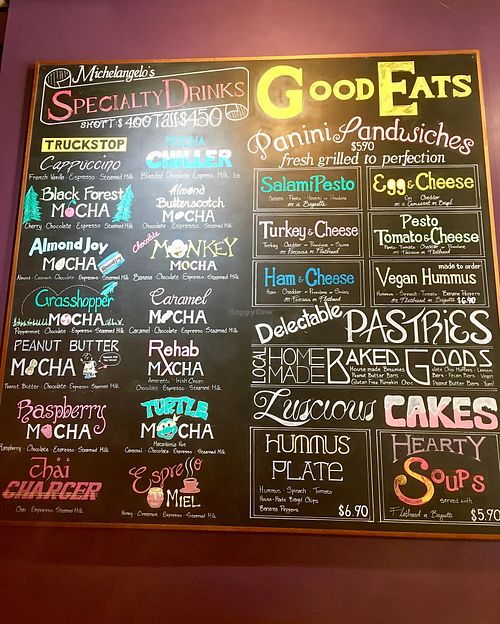 Michelangelo's
SPECIALTY DRINKS
SHORT $4.00 Tall $4.50
TRUCKSTOP
Cappuccino
French Vanilla · Espresso · Steamed Milk
MOCHA
CHILLER
Blended Chocolate, Espresso, Milk, Ice
Black Forest
MOCHA
Cherry, Chocolate · Espresso · Steamed Milk
Almond
Butterscotch
MOCHA
Chocolate · Espresso · Steamed Milk
Almond Joy
MOCHA
Almond · Coconut · Chocolate · Espresso · Steamed Milk
Chocolate
MONKEY
MOCHA
Banana · Chocolate · Espresso · Steamed Milk
Grasshopper
MOCHA
Peppermint · Chocolate · Espresso · Steamed Milk
Caramel
MOCHA
Caramel · Chocolate · Espresso · Steamed Milk
PEANUT BUTTER
MOCHA
Peanut Butter · Chocolate · Espresso · Steamed Milk
Rehab
MXCHA
Amaretto · Irish Cream
Chocolate · Espresso · Steamed Milk
Raspberry
MOCHA
Raspberry · Chocolate · Espresso · Steamed Milk
TURTLE
MOCHA
Macadamia Nut
Caramel · Chocolate · Espresso · Steamed Milk
Chai
CHARGER
Chai · Espresso · Steamed Milk
Espresso
MIEL
Honey · Cinnamon · Espresso · Steamed Milk
GOOD EATS
Panini Sandwiches
$5.90
fresh grilled to perfection
Salami & Pesto
Salami · Pesto · Havarti · Hummus
on a Baguette
Egg & Cheese
Egg · Cheddar
on a Croissant or Bagel
Turkey & Cheese
Turkey · Cheddar · Hummus
on Focaccia or Flatbread
Pesto
Tomato & Cheese
Pesto · Tomato · Cheddar
on Focaccia or Flatbread
Ham & Cheese
Ham · Cheddar · Hummus
on Focaccia or Flatbread
made to order
Vegan Hummus
Hummus · Spinach · Tomato · Banana Peppers
on Flatbread or Baguette $6.90
Delectable PASTRIES
LOCAL HOME MADE BAKED GOODS
House made Brownies
Peanut Butter Bars
Gluten Free Pumpkin Choc
Pecan Bars · Vegan
Peanut Butter · Yum!
Luscious CAKES
HUMMUS
PLATE
Hummus · Spinach · Tomato
House-Made Bagel Chips
Banana Peppers
$6.90
HEARTY
Soups
served with
Flatbread or Baguette $5.90
HappyCow